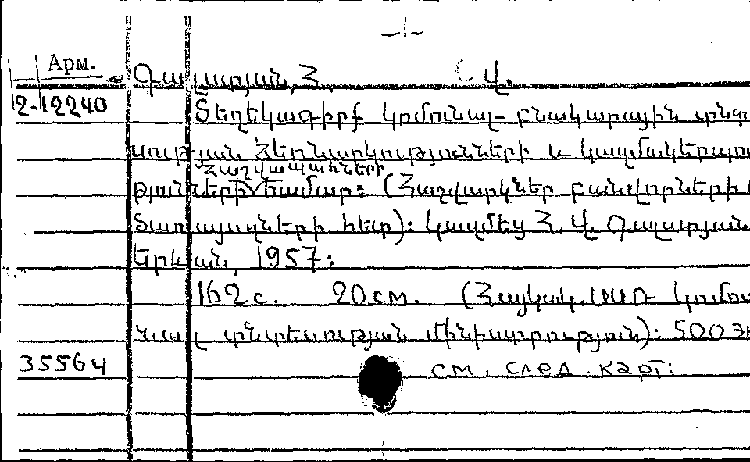 -1-
Арм.
Գալստյան, Հ. Վ.
2-12240 Տեղեկագիրք կոմունալ-բնակարային տնտ
սության ձեռնարկությունների և կազմակերպու
հաշվապահների
թյունների համար: (Հաշվարկներ բանվորների
ծառայողների հետ): Կազմեց Հ. Վ. Գալստյան
Երևան, 1957:
162 с. 20 см. (Հայկակ. ՍՍՌ կոմու
նալ տնտեսության մինիստրություն): 500
35564 см. след. карт: